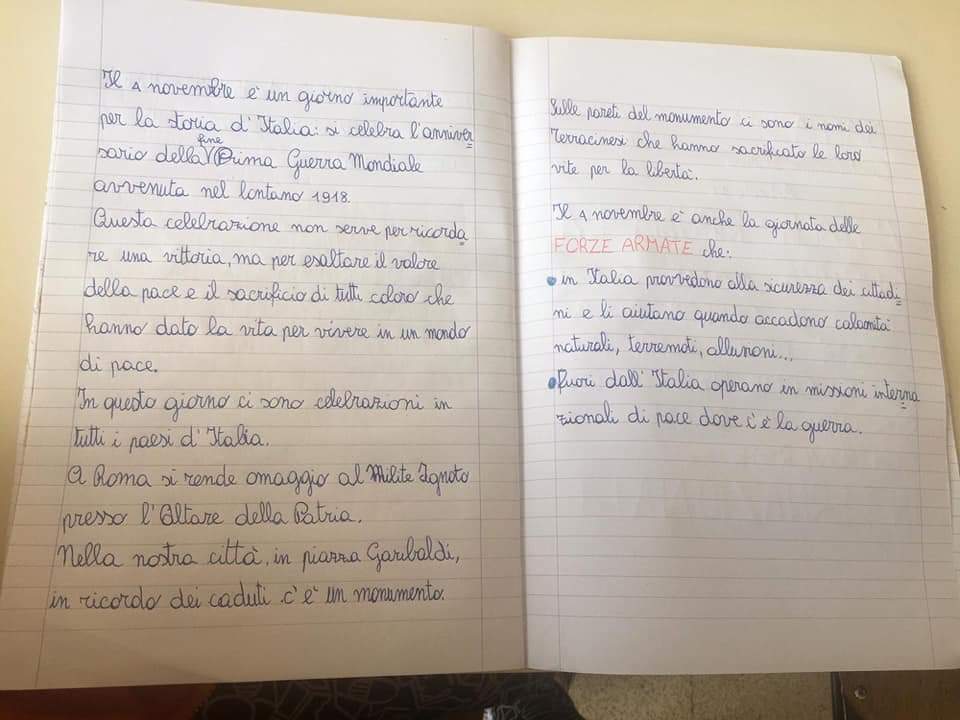 Il 4 novembre è un giorno importante
per la storia d'Italia: si celebra l'anniver
sario della fine Prima Guerra Mondiale
avvenuta nel lontano 1918.
Questa celebrazione non serve per ricorda
re una vittoria, ma per esaltare il valore
della pace e il sacrificio di tutti coloro che
hanno dato la vita per vivere in un mondo
di pace.
In questo giorno ci sono celebrazioni in
tutti i paesi d'Italia.
A Roma si rende omaggio al Milite Ignoto
presso l'Altare della Patria.
Nella nostra città, in piazza Garibaldi,
in ricordo dei caduti c'è un monumento.
Sulle pareti del monumento ci sono i nomi dei
Terracinesi che hanno sacrificato le loro
vite per la libertà.
Il 4 novembre è anche la giornata delle
FORZE ARMATE che:
• in Italia provvedono alla sicurezza dei cittadi
ni e li aiutano quando accadono calamità
naturali, terremoti, alluvioni...
• Fuori dall'Italia operano in missioni interna
zionali di pace dove c'è la guerra.